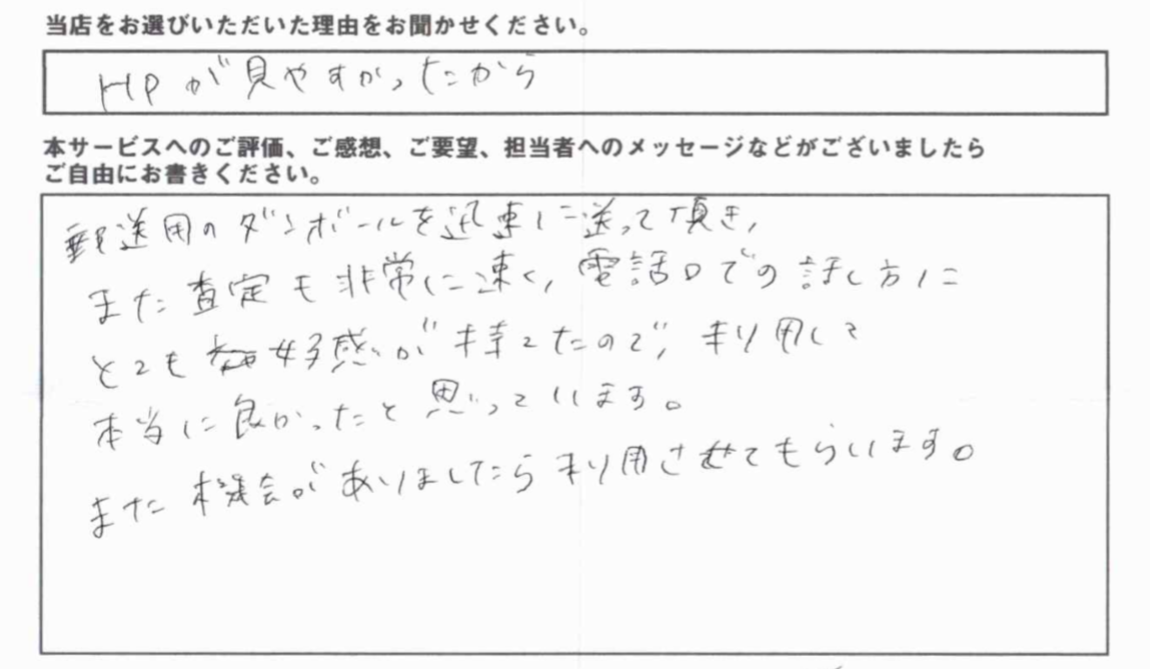 当店をお選びいただいた理由をお聞かせください。
HPが見やすかったから
本サービスへのご評価、ご感想、ご要望、担当者へのメッセージなどがございましたら
ご自由にお書きください。
郵送用のダンボールを迅速に送って頂き、
また査定も非常に速く、電話口での話し方に
とても好感が持てたので、利用して
本当に良かったと思っています。
また機会がありましたら利用させてもらいます。